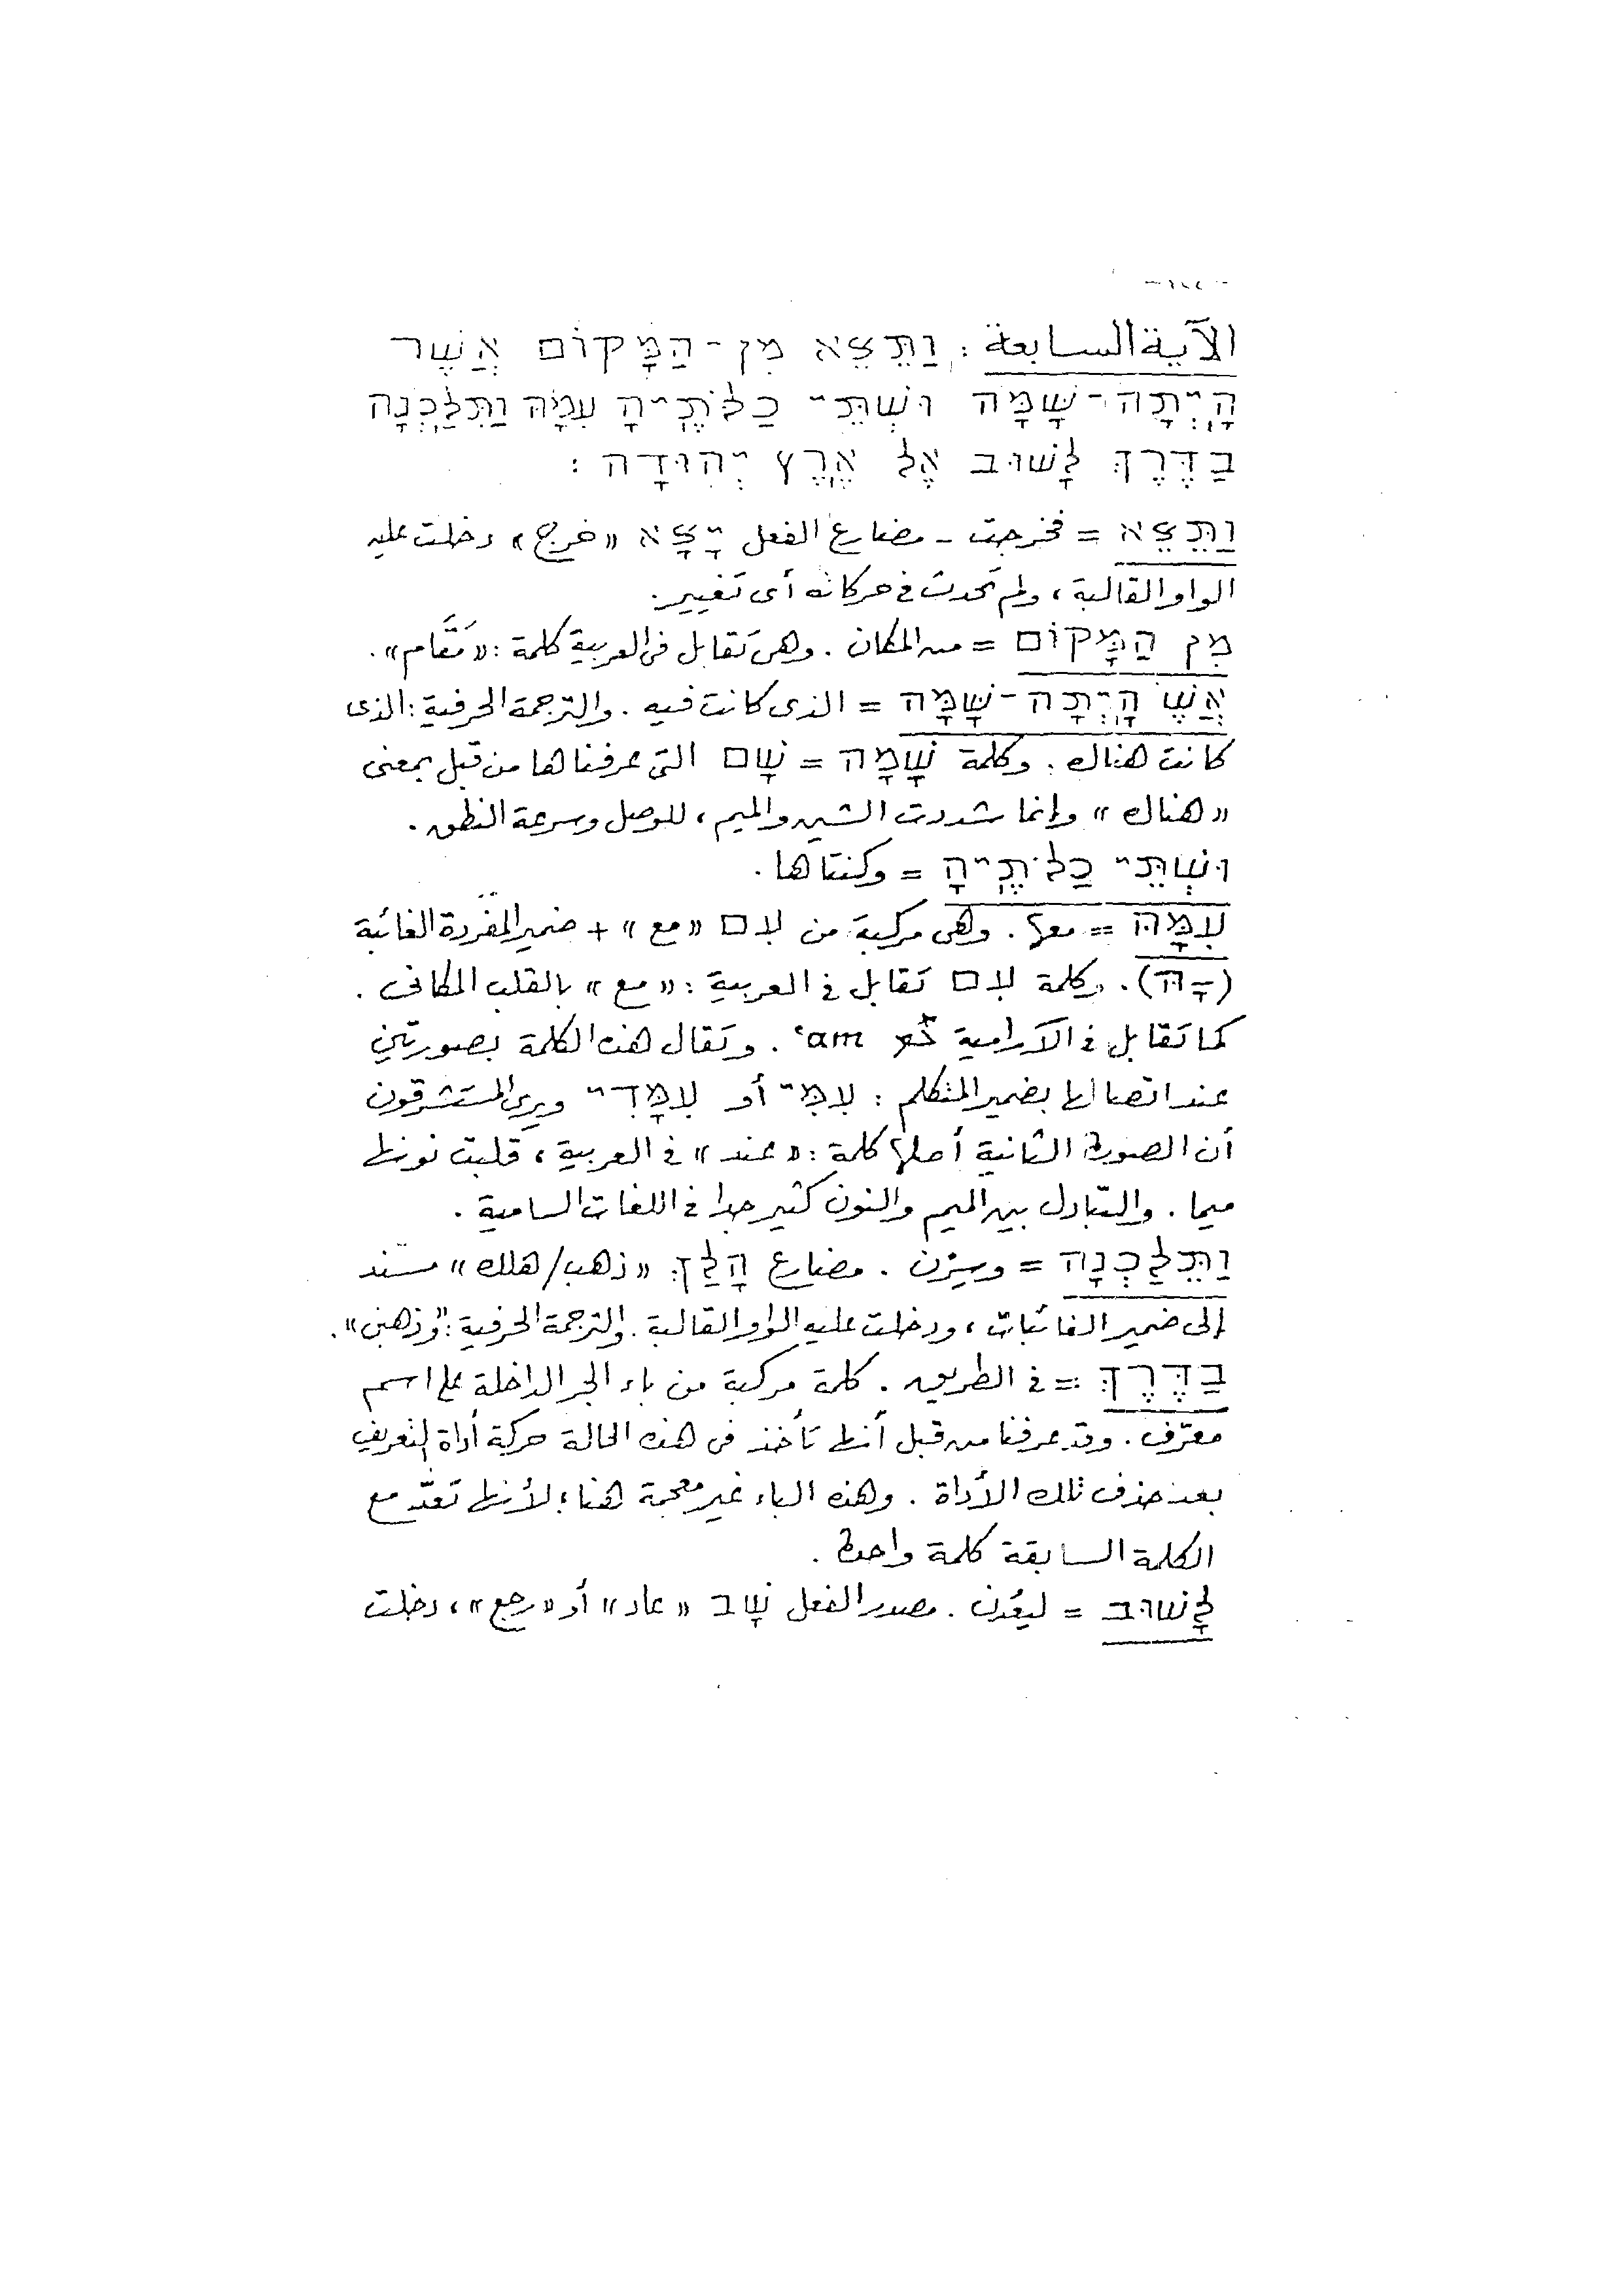 الآية السابعة : וַתֵּצֵא מִן-הַמָּקוֹם אֲשֶׁר
הָיְתָה-שָּׁמָּה וּשְׁתֵּי כַלֹּתֶיהָ עִמָּהּ וַתֵּלַכְנָה
בַדֶּרֶךְ לָשׁוּב אֶל אֶרֶץ יְהוּדָה :
וַתֵּצֵא = فخرجت - مضارع الفعل יָצָא «خرج» دخلت عليه
الواو القالبة ، ولم تحدث فى حركاته أى تغيير .
מִן הַמָּקוֹם = من المكان . وهى تقابل فى العربية كلمة : «مَقَام» .
אֲשֶׁ הָיְתָה-שָּׁמָּה = الذى كانت فيه . والترجمة الحرفية : الذى
كانت هناك . وكلمة שָּׁמָּה = שָׁם التى عرفناها من قبل بمعنى
«هناك» وإنما شددت الشين والميم ، للوصل وسرعة النطق .
וּשְׁתֵּי כַלֹּתֶיהָ = وكنتاها .
עִמָּהּ = معها . وهى مركبة من עִם «مع» + ضمير المفردة الغائبة
(ָהּ) . وكلمة עִם تقابل فى العربية : «مع» بالقلب المكانى .
كما تقابل فى الآرامية ܥܡ ʿam . وتقال هذه الكلمة بصورتين
عند اتصالها بضمير المتكلم : עִמִּי أو עִמָּדִי ويرى المستشرقون
أن الصورة الثانية أصلها كلمة : «عند» فى العربية ، قلبت نونها
ميما . والتبادل بين الميم والنون كثير جدا فى اللغات السامية .
וַתֵּלַכְנָה = وسِرْن . مضارع הָלַךְ «ذهب/هلك» مسند
إلى ضمير الغائبات ، ودخلت عليه الواو القالبة . والترجمة الحرفية : «وذهبن» .
בַדֶּרֶךְ = فى الطريق . كلمة مركبة من باء الجر الداخلة على اسم
معرّف . وقد عرفنا من قبل أنها تأخذ فى هذه الحالة حركة أداة التعريف
بعد حذف تلك الأداة . وهذه الباء غير معجمة هنا ؛ لأنها تعدّ مع
الكلمة السابقة كلمة واحدة .
לָשׁוּב = ليعُدن . مصدر الفعل שָׁב «عاد» أو «رجع» ، دخلت